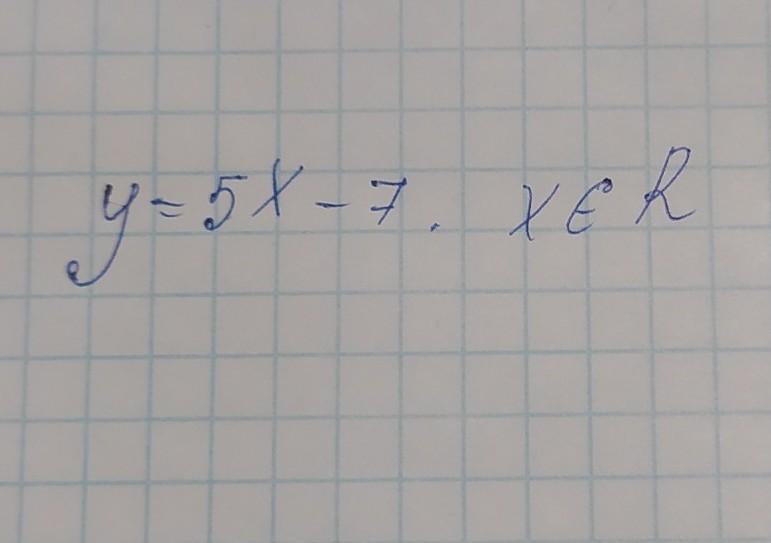 y = 5x - 7. x ∈ R